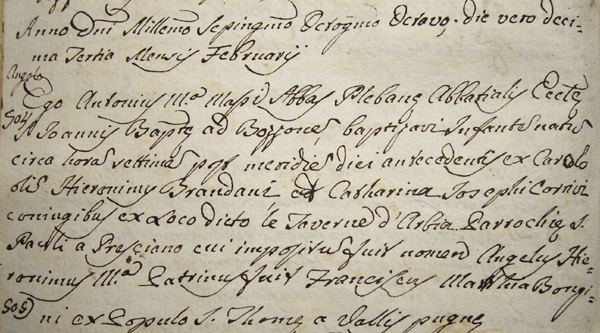 Anno Dni Millemo Sepingmo Octogmo Octavo, die vero deci-
ma Tertia Mensis Februarij
Angelo
Ego Antonius Ma Massi Abbas Plebanę Abbatialis Eccłę
504 S. Joannis Baptę ad Bozzonę, baptizavi Infantē natū
circa horā septimā post meridiē diei antecedentis ex Carolo
olīs Hieronimi Brandani et Catharina Josephi
coniugibus ex Loco dicto le Taverne d'Arbia Parrochię S.
Pauli a Presciano cui impositus fuit nomen Angelus Hie-
ronimus Ma Patrinus fuit Franciscus Bongi-
505 ni ex Populo S. Thomę a Vallis pugnę